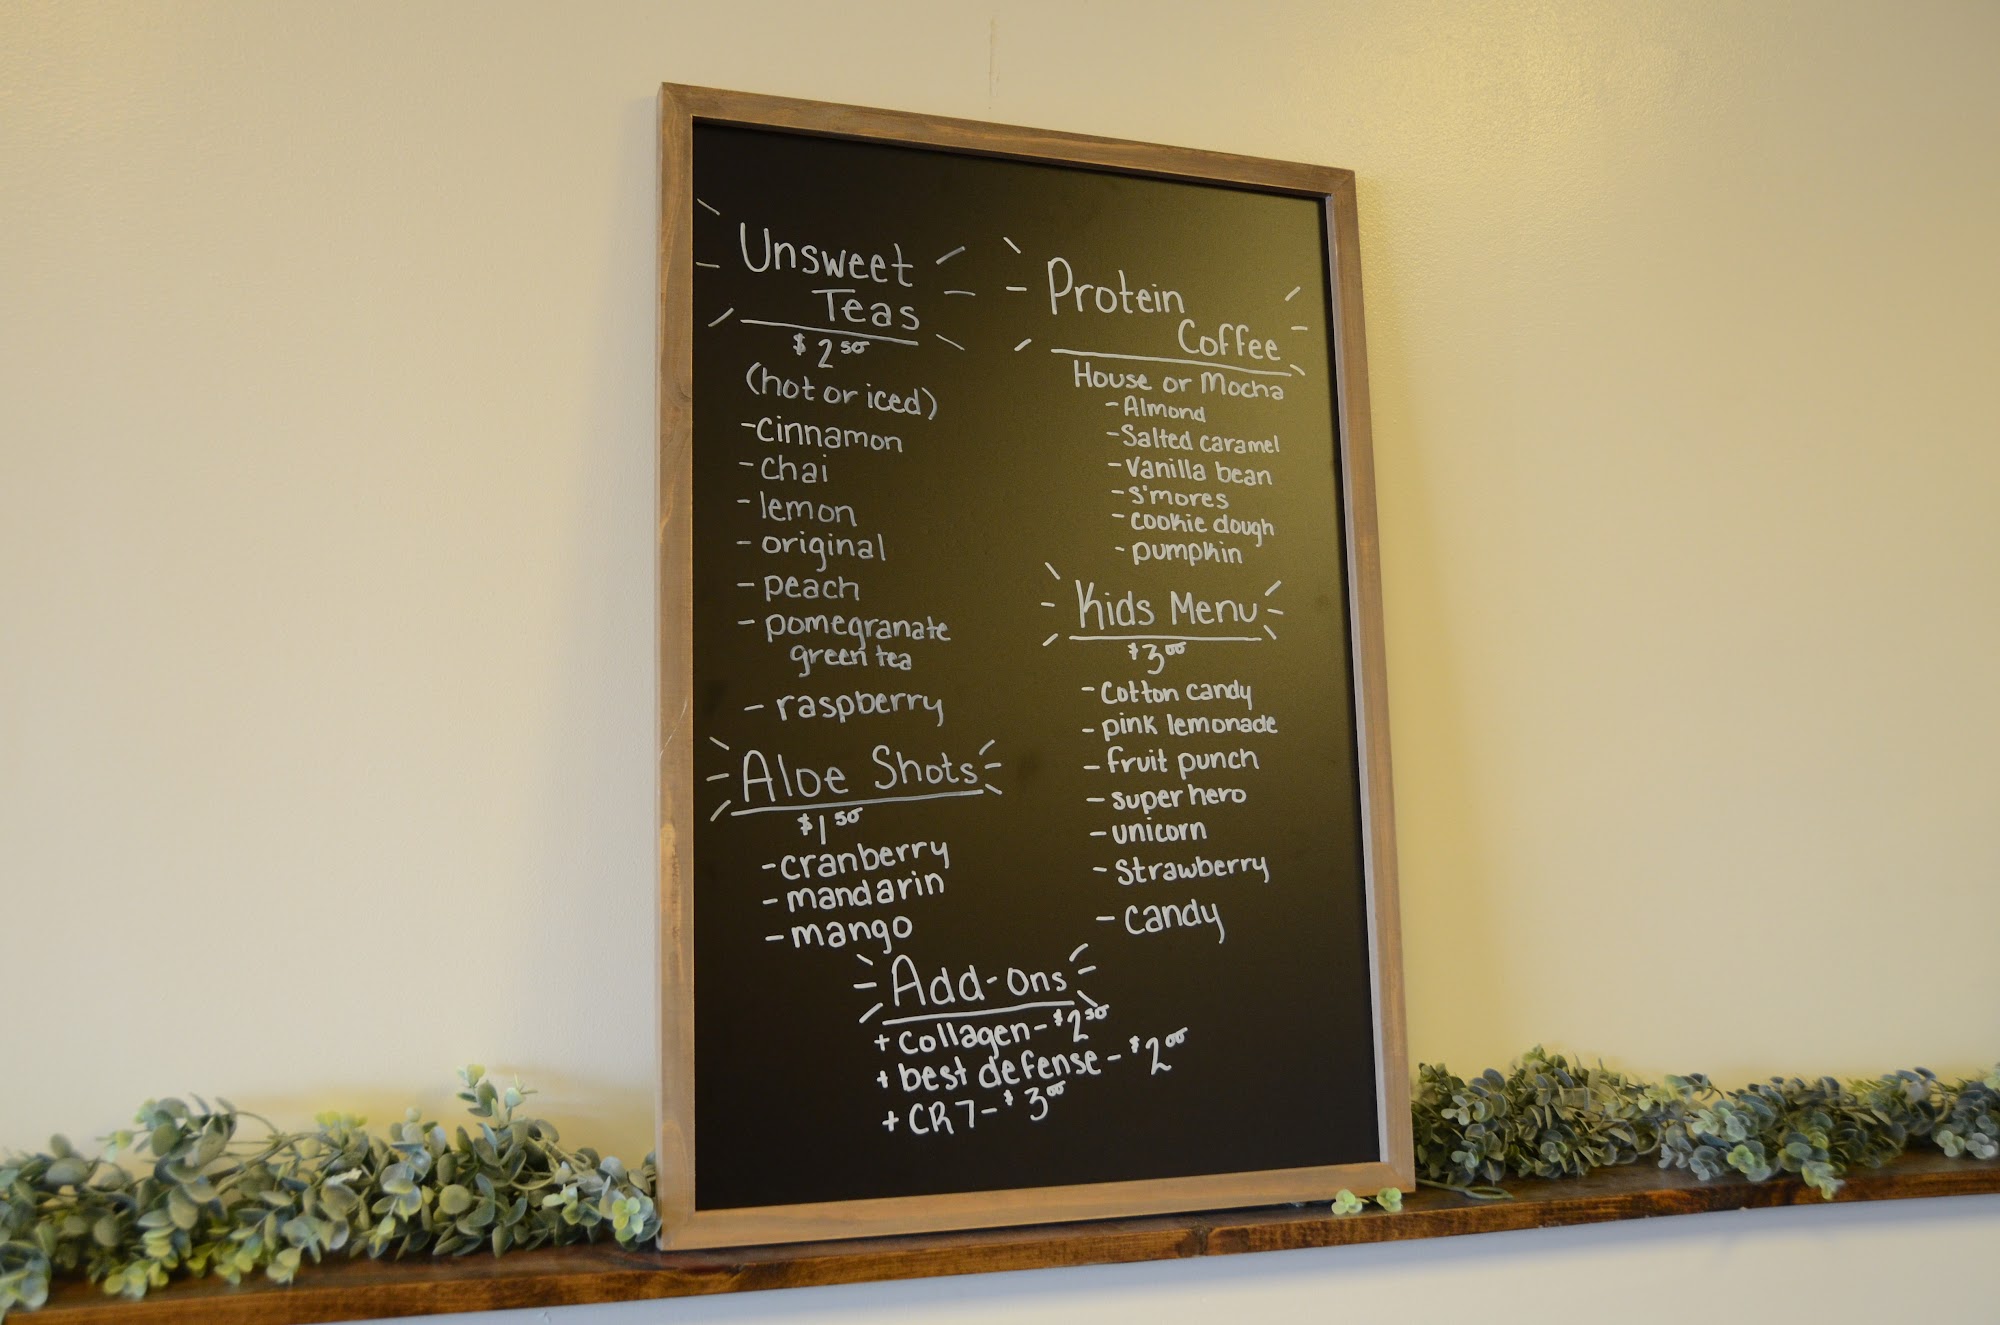 Unsweet
Teas
$2.50
(hot or iced)
-cinnamon
-chai
-lemon
-original
-peach
-pomegranate
green tea
-raspberry
Aloe Shots
$1.50
-cranberry
-mandarin
-mango
Protein
Coffee
House or Mocha
-Almond
-Salted caramel
-Vanilla bean
-s'mores
-cookie dough
-pumpkin
Kids Menu
$3.00
-Cotton candy
-pink lemonade
-fruit punch
-super hero
-unicorn
-Strawberry
-candy
Add-ons
+collagen-$2.50
+best defense-$2.00
+CR7-$3.00